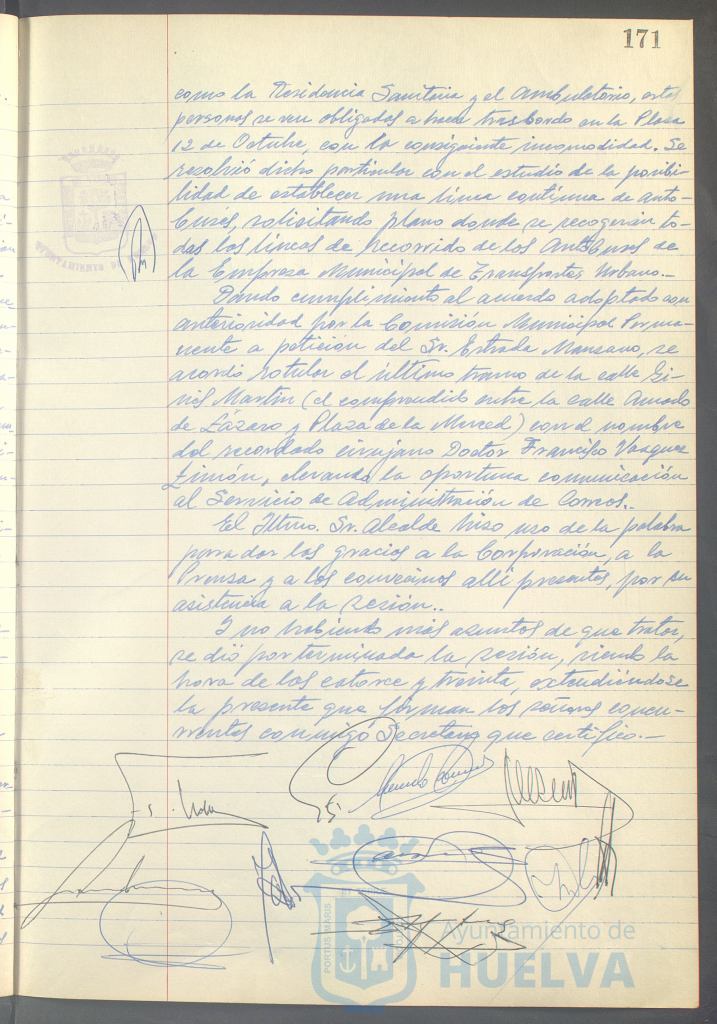 171
como la Residencia Sanitaria y el Ambulatorio, estas
personas se ven obligados a hacer trasbordo en la Plaza
12 de Octubre, con la consiguiente incomodidad. Se
resolvió dicho particular con el estudio de la posibi-
lidad de establecer una línea contínua de auto-
buses, solicitando plano donde se recogerán to-
das las líneas de recorrido de los Autobuses de
la Empresa Municipal de Transportes Urbano.-
Dando cumplimiento al acuerdo adoptado con
anterioridad por la Comisión Municipal Perma-
nente a petición del Sr. Estrada Manzano, se
acordó rotular el último tramo de la calle Gi-
nés Martín (el comprendido entre la calle Amado
de Lázaro y Plaza de la Merced) con el nombre
del recordado cirujano Doctor Francisco Vazquez
Limón, elevando la oportuna comunicación
al Servicio de Administración de Correos..
El Iltmo. Sr. Alcalde hizo uso de la palabra
para dar las gracias a la Corporación, a la
Prensa y a los convecinos allí presentes, por su
asistencia a la sesión..
Y no habiendo más asuntos de que tratar,
se dió por terminada la sesión, siendo la
hora de las catorce y treinta, extendiéndose
la presente que firman los señores concu-
rrentes conmigo Secretario que certifico.-
AYUNTAMIENTO DE
PORTUS MARIS
Ayuntamiento de
HUELVA